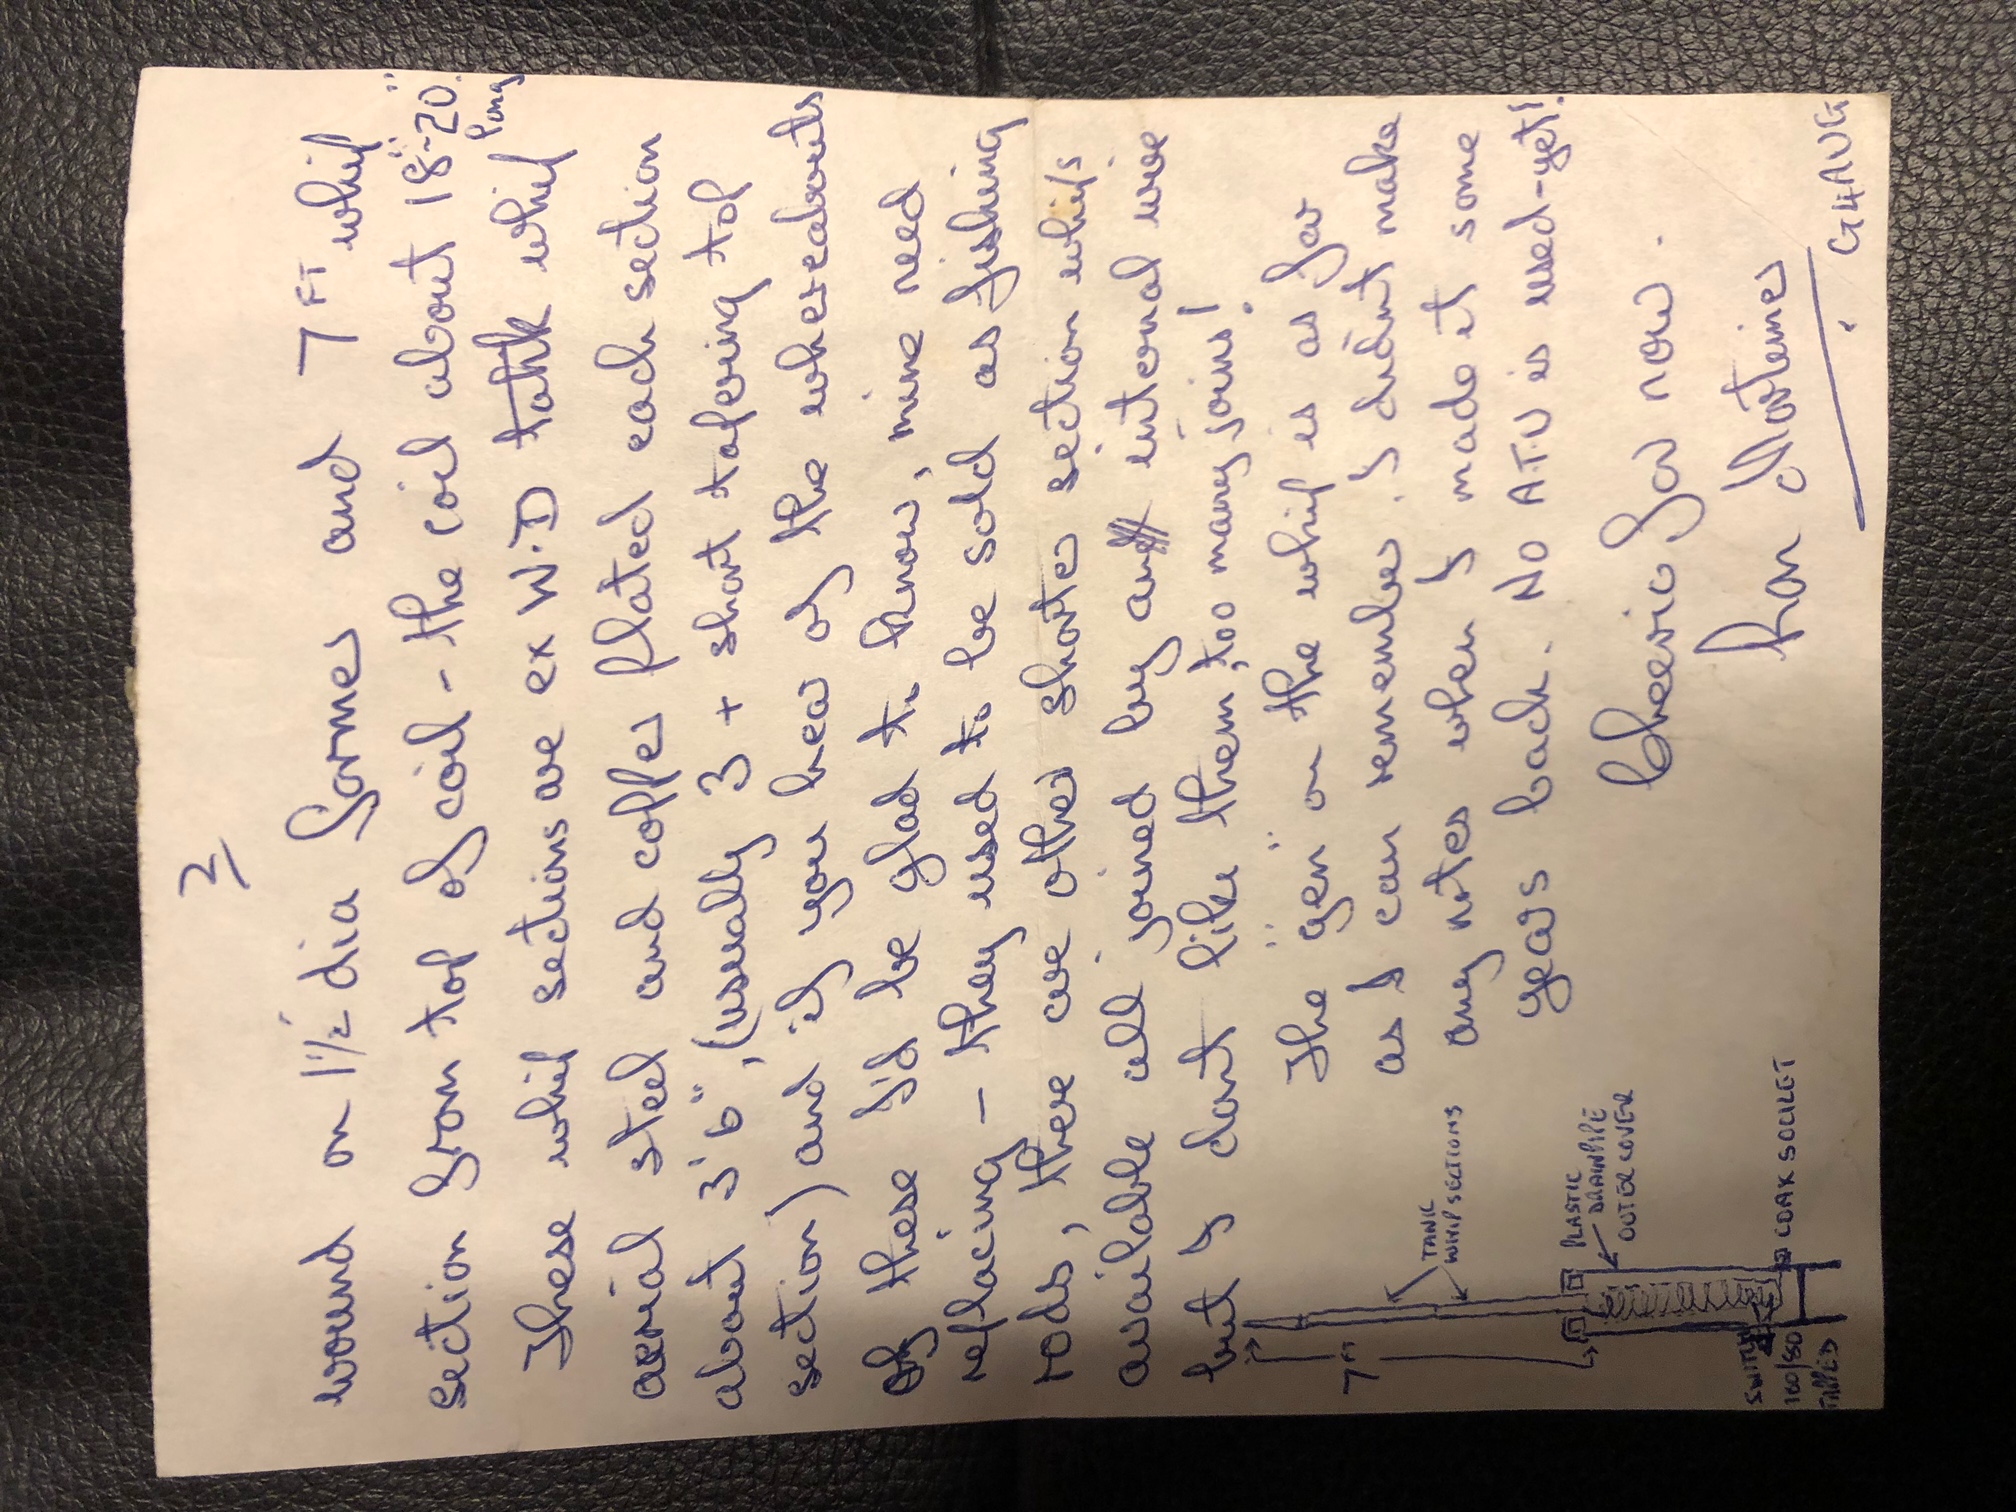 2
wound on 1½" dia former and 7FT whip
section from top of coil - the coil about 18"-20".
long
These whip sections are ex W.D tank whip
aerial steel and copper plated each section
about 3'6", (usually 3 + short tapering top
section) and if you hear of the whereabouts
of these I'd be glad to know, mine need
replacing - they used to be sold as fishing
rods, there are other shorter section whips
available all joined by an internal wire
but I dont like them, too many joins!
The "gen" on the whip is as far
as I can remember. I didn't make
any notes when I made it some
years back. No A.T.U is used-yet!
Cheerio for now.
Ron Mortimer
G4AUG
7FT
TANK
WHIP SECTIONS
PLASTIC
DRAINPIPE
OUTER COVER
SWITCH
160/80
TAPPED
COAX SOCKET